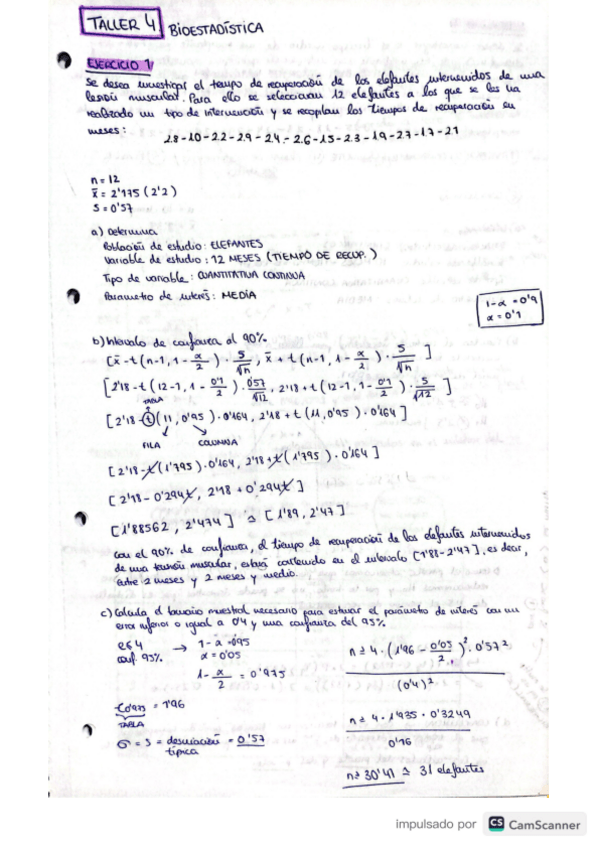 TALLER 4 BIOESTADÍSTICA
EJERCICIO 1
Se desea investigar el tiempo de recuperación de los elefantes intervenidos de una
lesión muscular. Para ello se seleccionan 12 elefantes a los que se les ha
realizado un tipo de intervención y se recopilan los tiempos de recuperación en
meses:
2.8-1.0-2.2-2.9-2.4.-2.6-1.5-2.3-1.9-2.7-1.7-2.1
n = 12
x̄ = 2'175 (2'2)
S = 0'57
a) Determina
Población de estudio: ELEFANTES
Variable de estudio: 12 MESES (TIEMPO DE RECUP.)
Tipo de variable: CUANTITATIVA CONTINUA
Parámetro de interés: MEDIA
1-α = 0'9
α = 0'1
b) Intervalo de confianza al 90%
[x̄ - t (n-1, 1 - α/2) · S/√n, x̄ + t (n-1, 1 - α/2) · S/√n ]
[2'18 - t (12-1, 1 - 0'1/2) · 0'57/√12, 2'18 + t (12-1, 1 - 0'1/2) · S/√12 ]
TABLA
[2'18 - t (11, 0'95) · 0'164, 2'18 + t (11, 0'95) · 0'164]
FILA COLUMNA
[2'18 - t (1'795) · 0'164, 2'18 + t (1'795) · 0'164]
[2'18 - 0'294t, 2'18 + 0'294t]
[1'88562, 2'474] ≃ [1'89, 2'47]
Con el 90% de confianza, el tiempo de recuperación de los elefantes intervenidos
de una muscular, estará contenido en el intervalo [1'88-2'47], es decir,
entre 2 meses y 2 meses y medio.
c) Calcula el tamaño muestral necesario para estimar el parámetro de interés con un
error inferior o igual a 0'4 y una confianza del 95%.
e≤ 4
conf. 95%
→ 1-α = 0'95
α = 0'05
1 - α/2 = 0'975
0'975 = 1'96
TABLA
σ = S = desviación típica = 0'57
n ≥ 4 · (1'96 - 0'05/2)² · 0'57²
(0'4)²
n ≥ 4 · 1'935 · 0'3249
0'16
n ≥ 30'41 ≃ 31 elefantes
impulsado por CS CamScanner